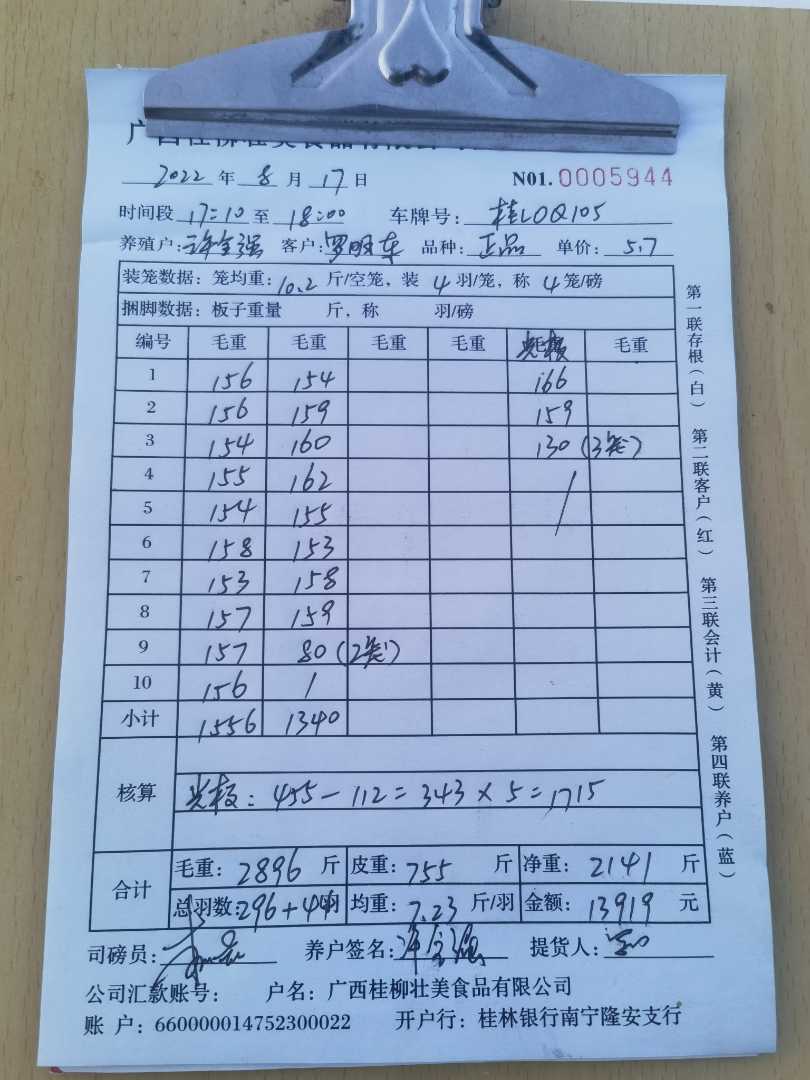 2022 年 8 月 17 日 N01.0005944
时间段 17:10 至 18:00 车牌号: 桂LOQ105
养殖户: 许全强 客户: 罗明车 品种: 正品 单价: 5.7
装笼数据: 笼均重: 10.2 斤/空笼, 装 4 羽/笼, 称 4 笼/磅
捆脚数据: 板子重量 斤, 称 羽/磅
编号 毛重 毛重 毛重 毛重 光板 毛重
1 156 154 166
2 156 159 159
3 154 160 130 (3笼)
4 155 162 /
5 154 155
6 158 153
7 153 158
8 157 159
9 157 80 (2笼)
10 156 /
小计 1556 1340
核算 光板: 455-112=343×5=1715
合计 毛重: 2896 斤 皮重: 755 斤 净重: 2141 斤
总羽数: 296+44 羽 均重: 7.23 斤/羽 金额: 13919 元
司磅员: 养户签名: 提货人:
公司汇款账号: 户名: 广西桂柳壮美食品有限公司
账 户: 660000014752300022 开户行: 桂林银行南宁隆安支行
第一联存根(白) 第二联客户(红) 第三联会计(黄) 第四联养户(蓝)